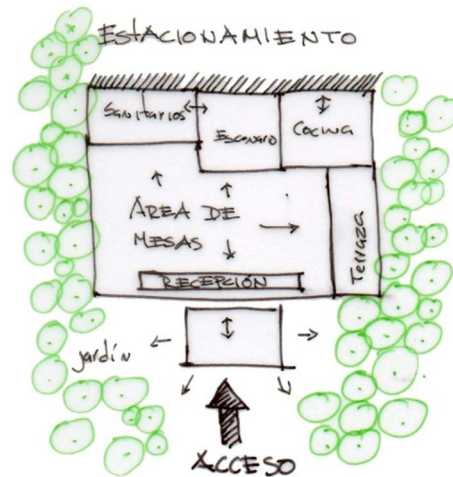 ESTACIONAMIENTO
Sanitarios
Escenario
Cocina
ÁREA DE
MESAS
Terraza
RECEPCIÓN
jardín
ACCESO